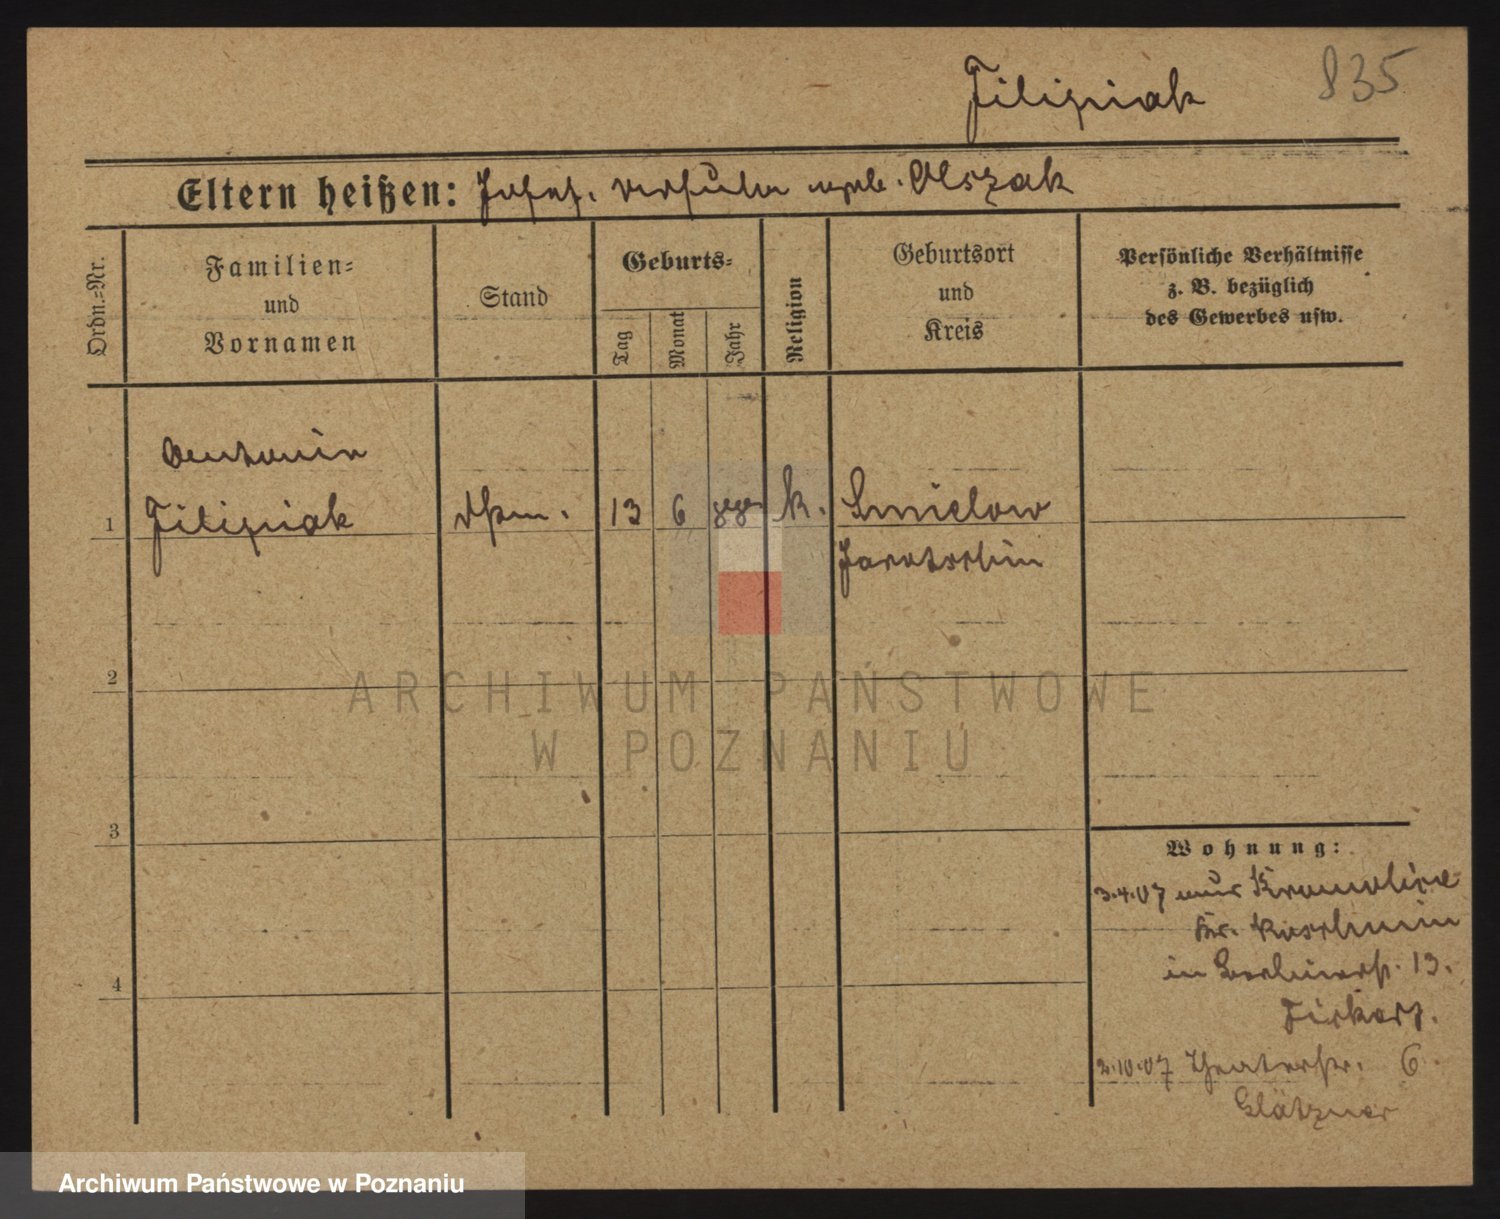 Filipiak 835
Eltern heißen: Josef. geb. Olszak
Ordn.-Nr.
Familien-
und
Vornamen
Stand
Geburts-
Tag
Monat
Jahr
Religion
Geburtsort
und
Kreis
Persönliche Verhältnisse
z. B. bezüglich
des Gewerbes usw.
Antonie
1 Filipiak 13 6 k. Smielow
Jarotschin
2
ARCHIWUM PAŃSTWOWE
W POZNANIU
3
4
Wohnung:
3.4.07 aus
Kr. Koschmin
in 13.
2.10.07 Theaterstr. 6
Glätzner
Archiwum Państwowe w Poznaniu